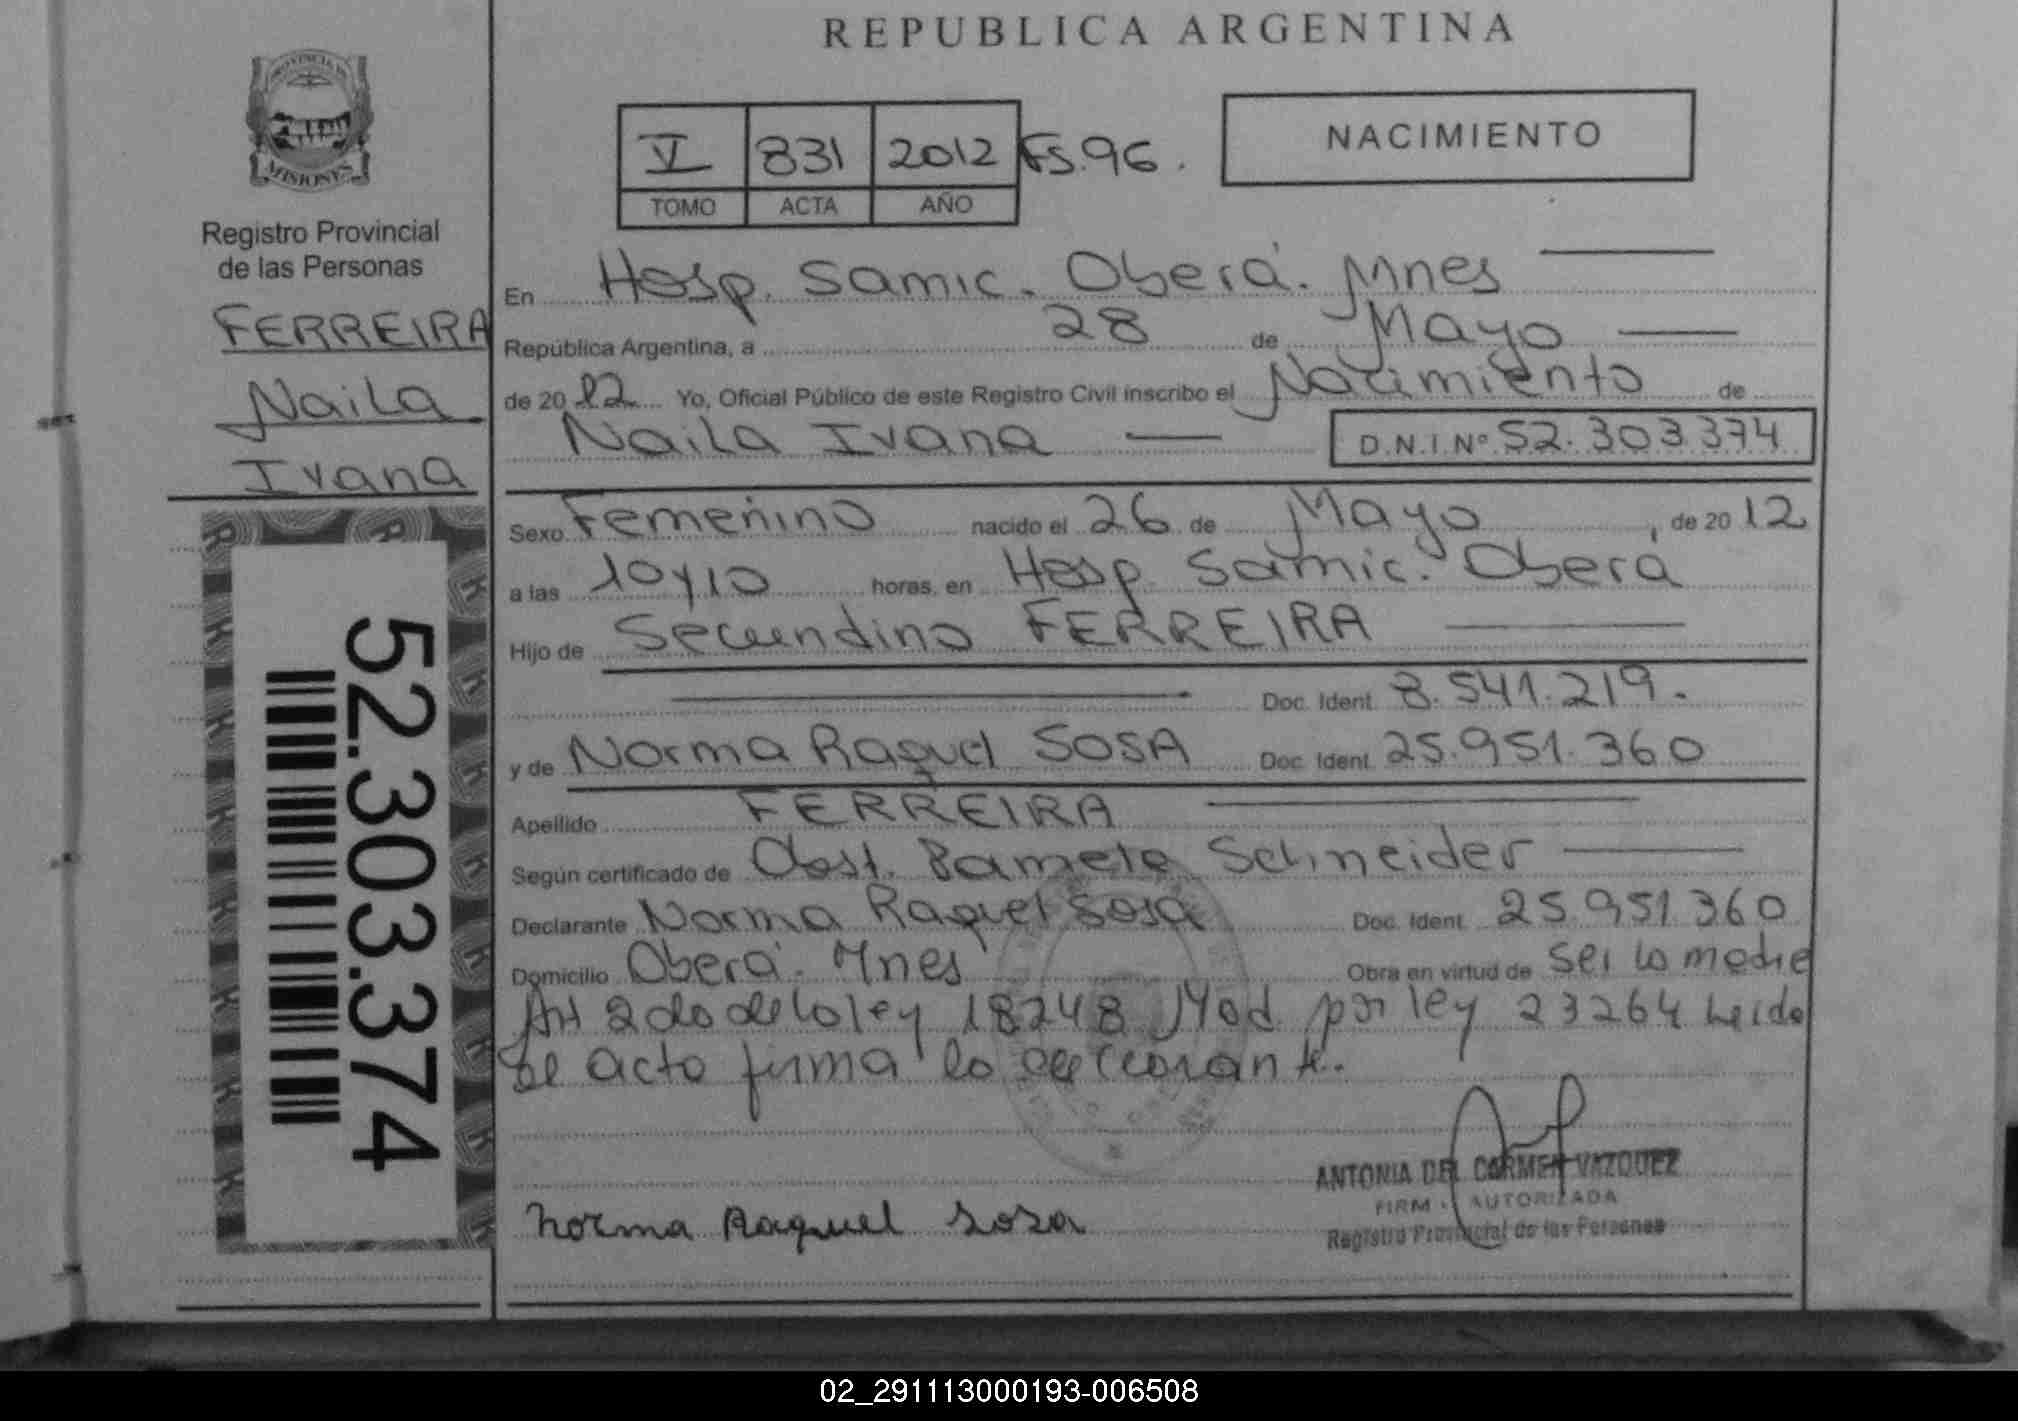 REPUBLICA ARGENTINA
PROVINCIA DE
MISIONES
Registro Provincial
de las Personas
FERREIRA
Naila
Ivana
52.303.374
V 831 2012 Fs.96.
TOMO ACTA AÑO
NACIMIENTO
En Hosp. Samic. Oberá. Mnes
República Argentina, a 28 de Mayo
de 2012 Yo, Oficial Público de este Registro Civil inscribo el Nacimiento de
Naila Ivana D.N.I.Nº 52.303.374
Sexo Femenino nacido el 26 de Mayo, de 2012
a las 10y10 horas, en Hosp. Samic. Oberá
Hijo de Secundino FERREIRA
Doc. Ident. 8.541.219.
y de Norma Raquel SOSA Doc. Ident. 25.951.360
Apellido FERREIRA
Según certificado de Obst. Pamela Schneider
Declarante Norma Raquel Sosa Doc. Ident. 25.951.360
Domicilio Oberá. Mnes Obra en virtud de Ser la madre
Art 2do de la ley 18248 Mod. por ley 23264 Leida
el acto firma la declarante.
ANTONIA DEL CARMEN VAZQUEZ
FIRMA AUTORIZADA
Registro Provincial de las Personas
Norma Raquel Sosa
02_291113000193-006508